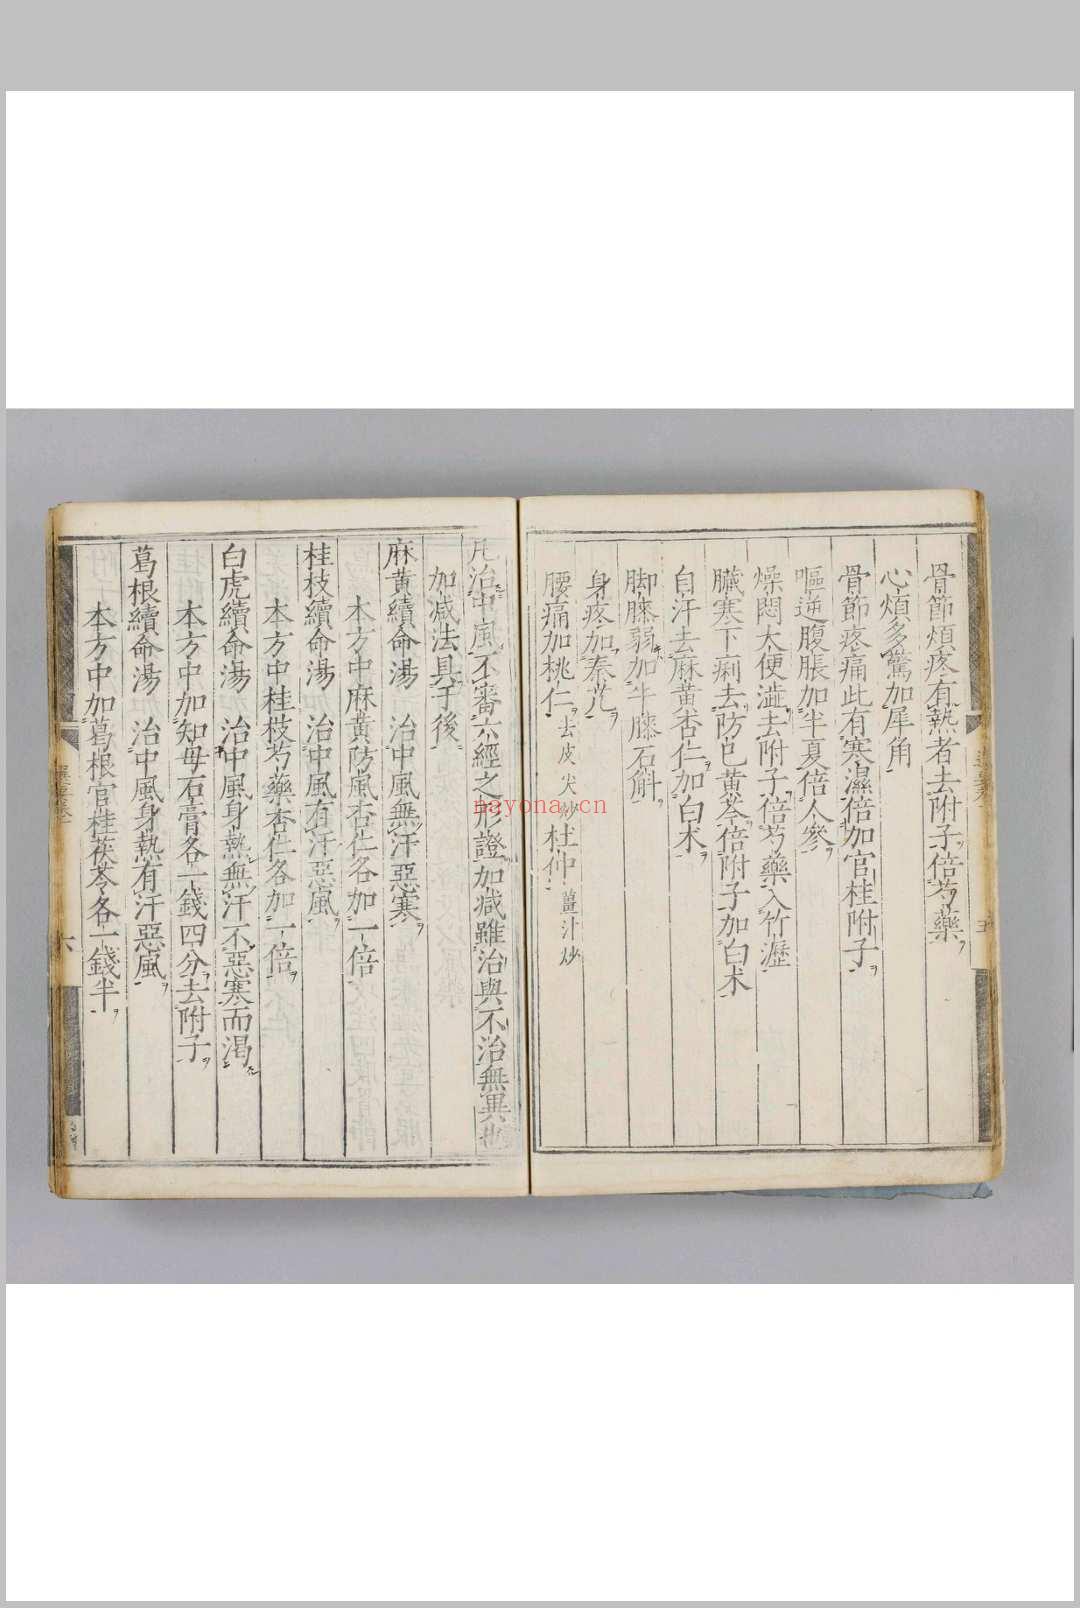 骨節煩疼有熱者去附子倍芍藥
心煩多驚加犀角
骨節疼痛此有寒濕倍加官桂附子
嘔逆腹脹加半夏倍人參
燥悶大便澁去附子倍芍藥入竹瀝
臟寒下痢去防已黄芩倍附子加白术
自汗去麻黄杏仁加白术
脚膝弱加牛膝石斛
身疼加秦艽
腰痛加桃仁去皮尖炒杜仲薑汁炒
五
凡治中風不審六經之形證加减雖治與不治無異也
加减法具于後
麻黄續命湯 治中風無汗惡寒
本方中麻黄防風杏仁各加一倍
桂枝續命湯 治中風有汗惡風
本方中桂枝芍藥杏仁各加一倍
白虎續命湯 治中風身熱無汗不惡寒而渴
本方中加知母石膏各一錢四分去附子
葛根續命湯 治中風身熱有汗惡風
本方中加葛根官桂茯苓各一錢半
六
nayona.cn